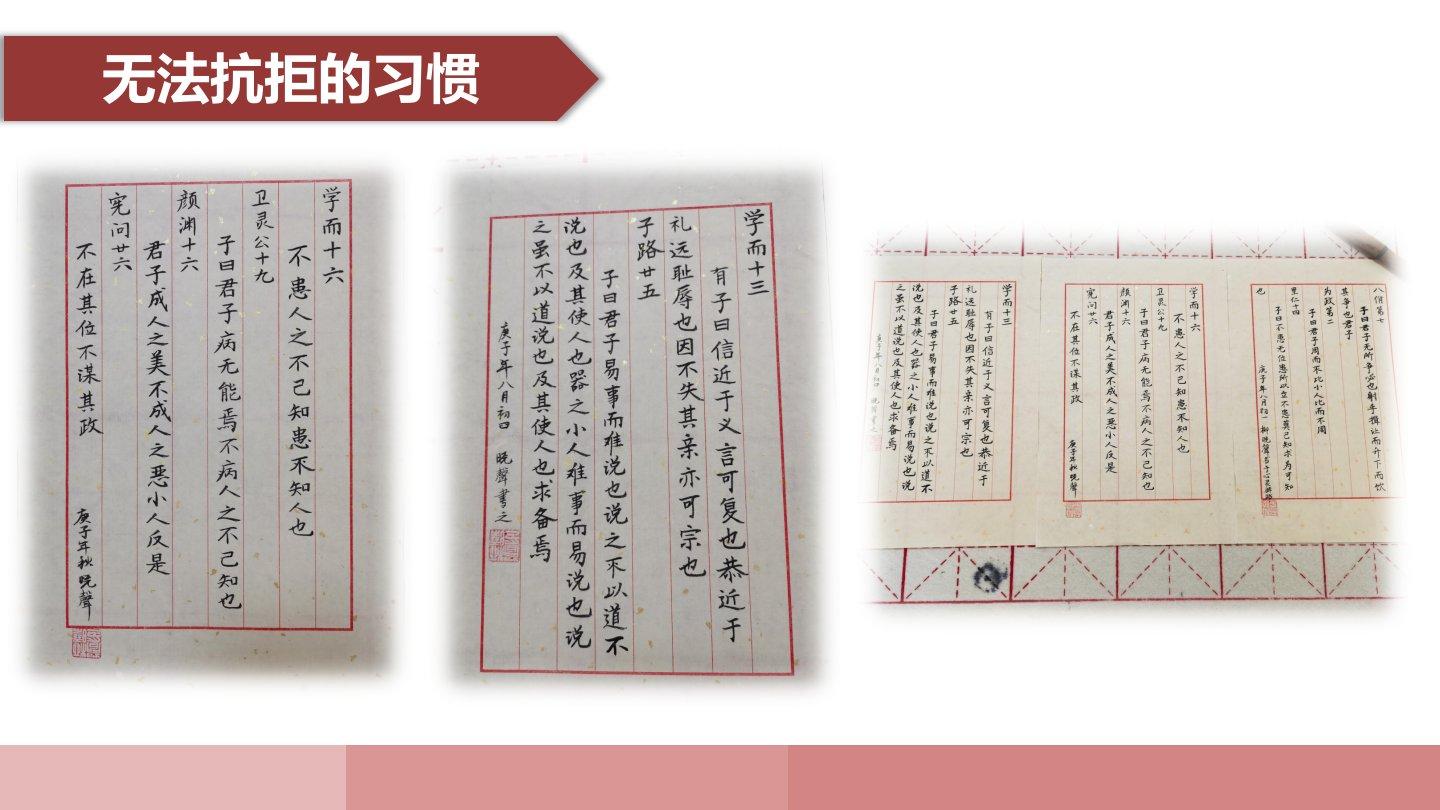 无法抗拒的习惯
学而十六
不患人之不己知患不知人也
卫灵公十九
子曰君子病无能焉不病人之不己知也
颜渊十六
君子成人之美不成人之恶小人反是
宪问廿六
不在其位不谋其政
庚子年秋晚聲
学而十三
有子曰信近于义言可复也恭近于
礼远耻辱也因不失其亲亦可宗也
子路廿五
子曰君子易事而难说也说之不以道不
说也及其使人也器之小人难事而易说也说
之虽不以道说也及其使人也求备焉
庚子年八月初口 晚聲書之
八佾第七
子曰君子无所争必也射乎揖让而升下而饮
其争也君子
为政第二
子曰君子周而不比小人比而不周
里仁十四
子曰不患无位患所以立不患莫己知求为可知
也
庚子年八月初一
学而十六
不患人之不己知患不知人也
卫灵公十九
子曰君子病无能焉不病人之不己知也
颜渊十六
君子成人之美不成人之恶小人反是
宪问廿六
不在其位不谋其政
庚子年秋晚聲
学而十三
有子曰信近于义言可复也恭近于
礼远耻辱也因不失其亲亦可宗也
子路廿五
子曰君子易事而难说也说之不以道不
说也及其使人也器之小人难事而易说也说
之虽不以道说也及其使人也求备焉